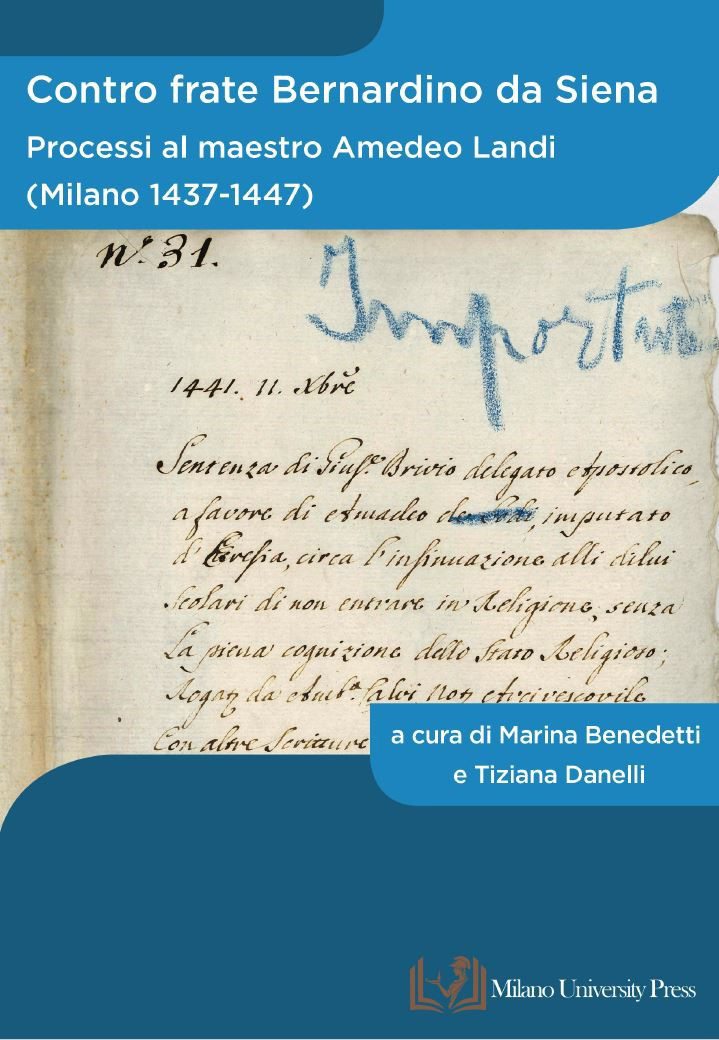 Contro frate Bernardino da Siena
Processi al maestro Amedeo Landi
(Milano 1437-1447)
n.° 31.
Importante
1441. 11. Xbrẽ
Sentenza di Gius.e Brivio delegato Apostolico,
a favore di Amadeo de, imputato
d'Eresia, circa l'insinuazione alli dilui
Scolari di non entrare in Religione, senza
La piena cognizione dello Stato Religioso;
Rogaz da Amb.o Salvi Not Arcivescovile
Con altre Scritture
a cura di Marina Benedetti
e Tiziana Danelli
Milano University Press